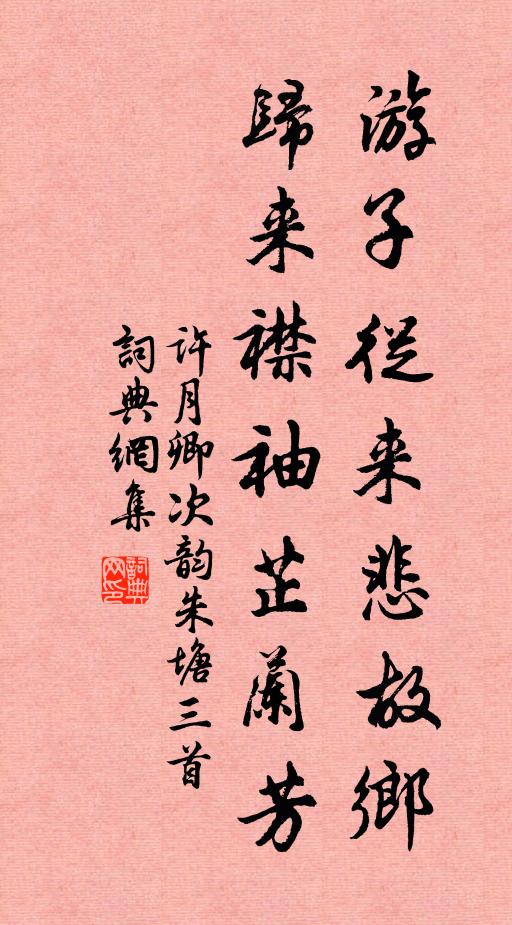 游子從来悲故鄉
歸来襟袖芷蘭芳
许月卿次韵朱塘三首
詞典網集
詞典网印